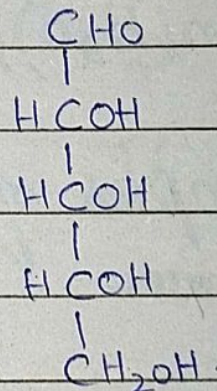 CHO
HCOH
HCOH
HCOH
CH₂OH